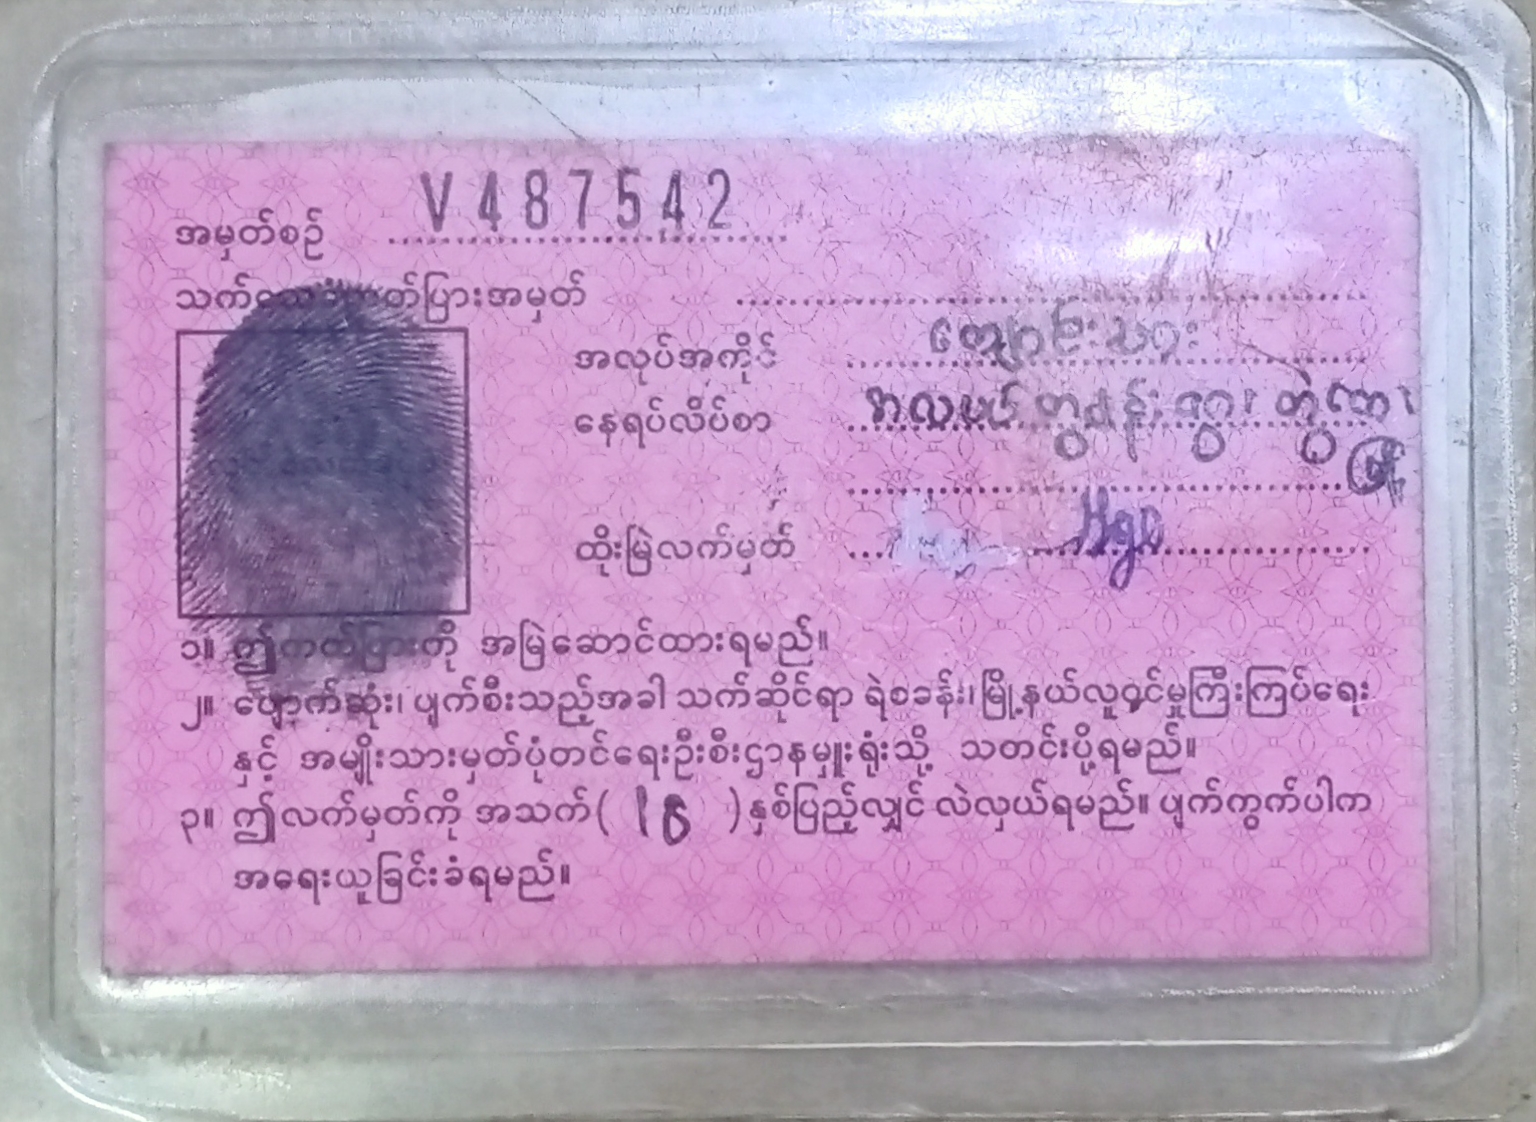 အမှတ်စဉ် V 487542
သက်သေခံကတ်ပြားအမှတ်
အလုပ်အကိုင် ကျောင်းသား
နေရပ်လိပ်စာ
ထိုးမြဲလက်မှတ်
၁။ ဤကတ်ပြားကို အမြဲဆောင်ထားရမည်။
၂။ ပျောက်ဆုံး၊ ပျက်စီးသည့်အခါ သက်ဆိုင်ရာ ရဲစခန်း၊ မြို့နယ်လူဝင်မှုကြီးကြပ်ရေး
နှင့် အမျိုးသားမှတ်ပုံတင်ရေးဦးစီးဌာနမှူးရုံးသို့ သတင်းပို့ရမည်။
၃။ ဤလက်မှတ်ကို အသက်( 18 )နှစ်ပြည့်လျှင် လဲလှယ်ရမည်။ ပျက်ကွက်ပါက
အရေးယူခြင်းခံရမည်။